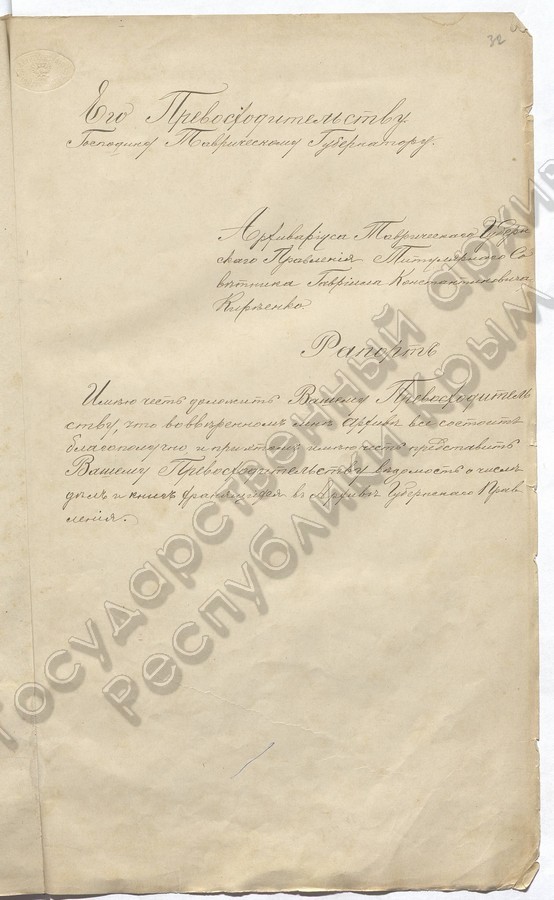 32
Его Превосходительству
Господину Таврическому Губернатору.
Архиваріуса Таврическаго Губерн
скаго Правленія Титулярнаго Со
вѣтника Гавріила Константиновича
Кириенко.
Рапортъ
Имѣю честь доложить Вашему Превосходитель
ству, что во ввѣренномъ мнѣ архивѣ все состоитъ
благополучно и при этомъ имѣю честь представить
Вашему Превосходительству вѣдомость о числѣ
дѣлъ и книгъ хранящихся въ Архивѣ Губернскаго Прав
ленія.
Государственный архив
Республики Крым